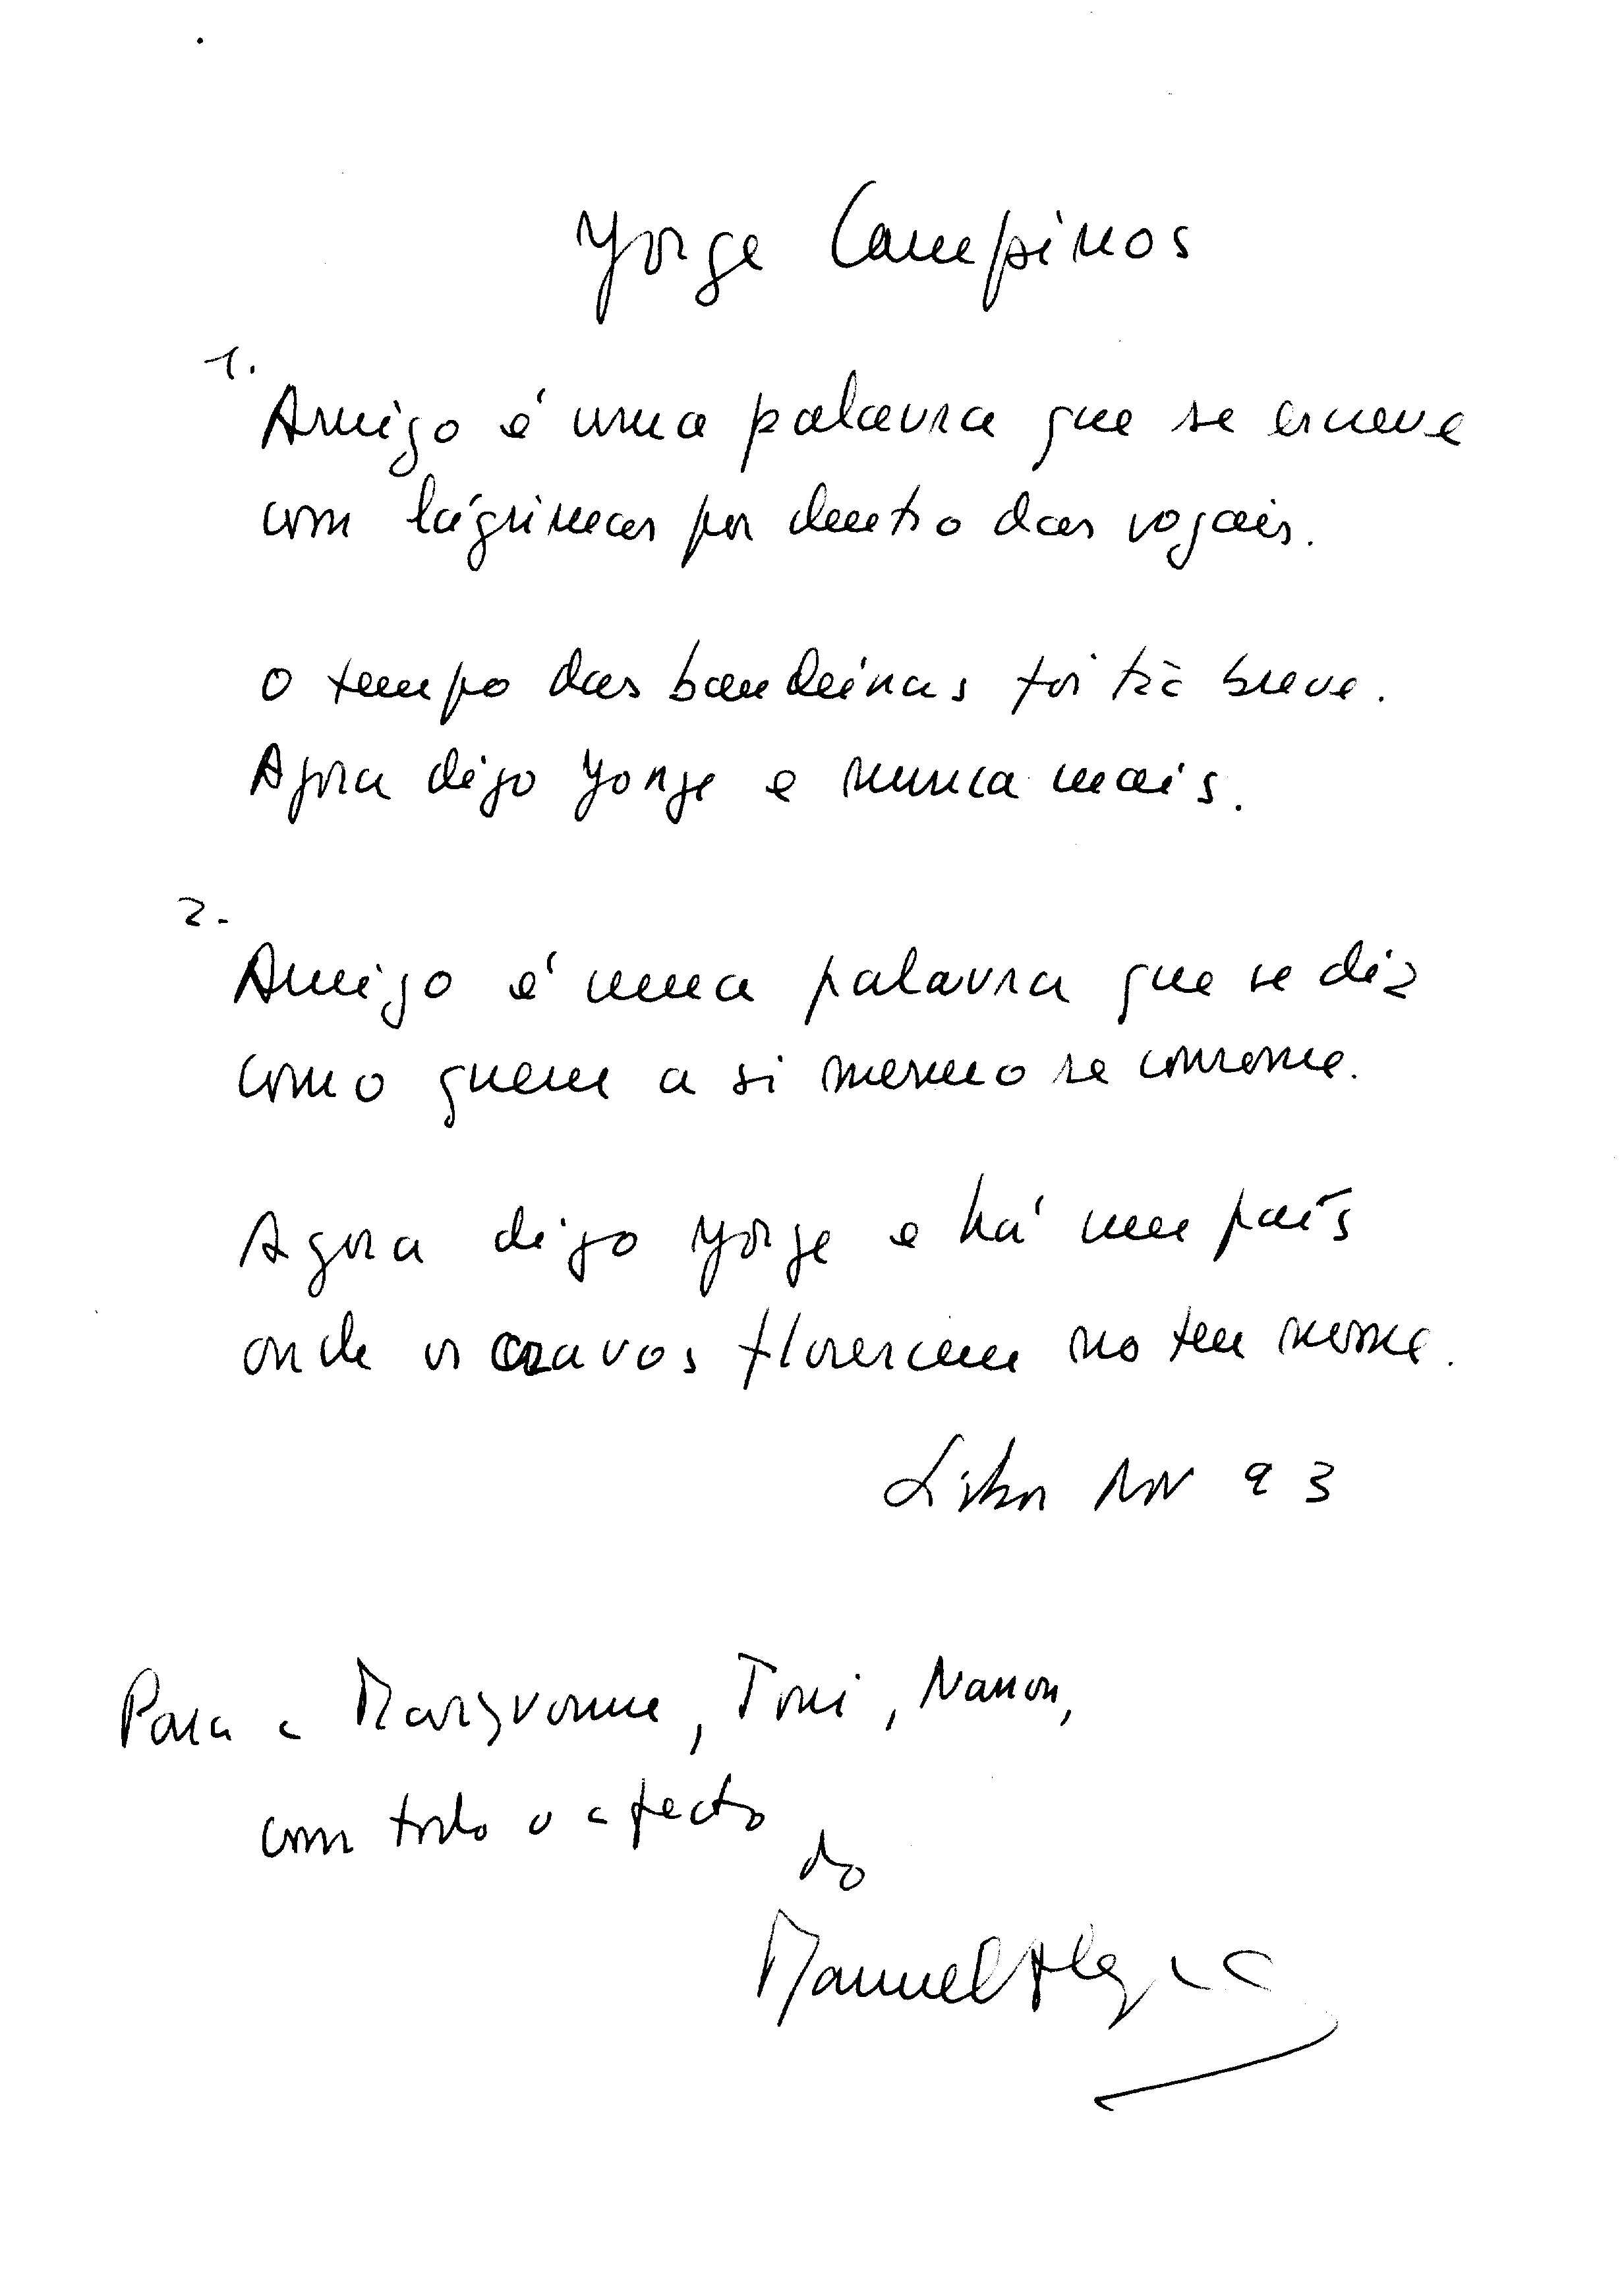 Yorge Campinos
1.
Amigo é uma palavra que se escreve
com lágrimas por dentro das vogais.
O tempo das bandeiras foi tão breve.
Agora digo Yorge e nunca mais.
2.
Amigo é uma palavra que se diz
como quem a si mesmo se consome.
Agora digo Yorge e há um país
onde os cravos florescem no teu nome.
Lisboa Nov 93
Para a Maryvonne, Toni, Nanon,
com todo o afecto
do
Manuel Alegre